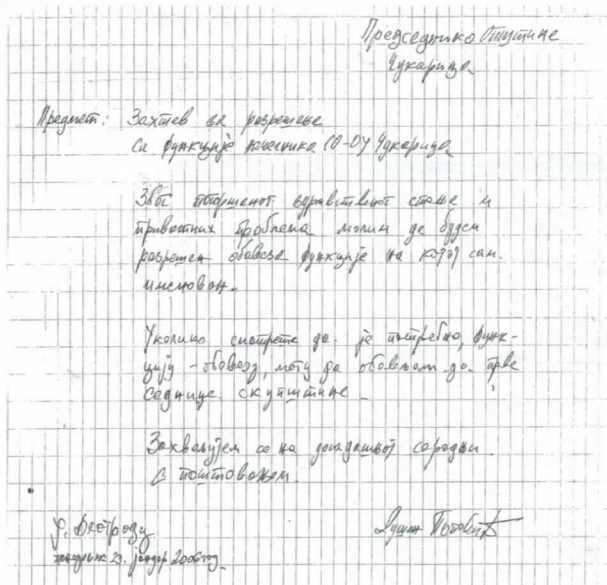 Председнико Општине
Чукарица
Предмет: Захтев за разрешење
Са функције начелника СО-ОУ Чукарица
Због погоршеног здравственог стања и
приватних проблема молим да будем
разрешен обавезе функције на којој сам
именован.
Уколико сматрате да је потребно, функ-
цију - обавезу, могу да обављам до прве
седнице скупштине
Захваљујем се на досадашњој сарадњи
С поштовањем
У Београду
23. јануар 2006 год
Душан